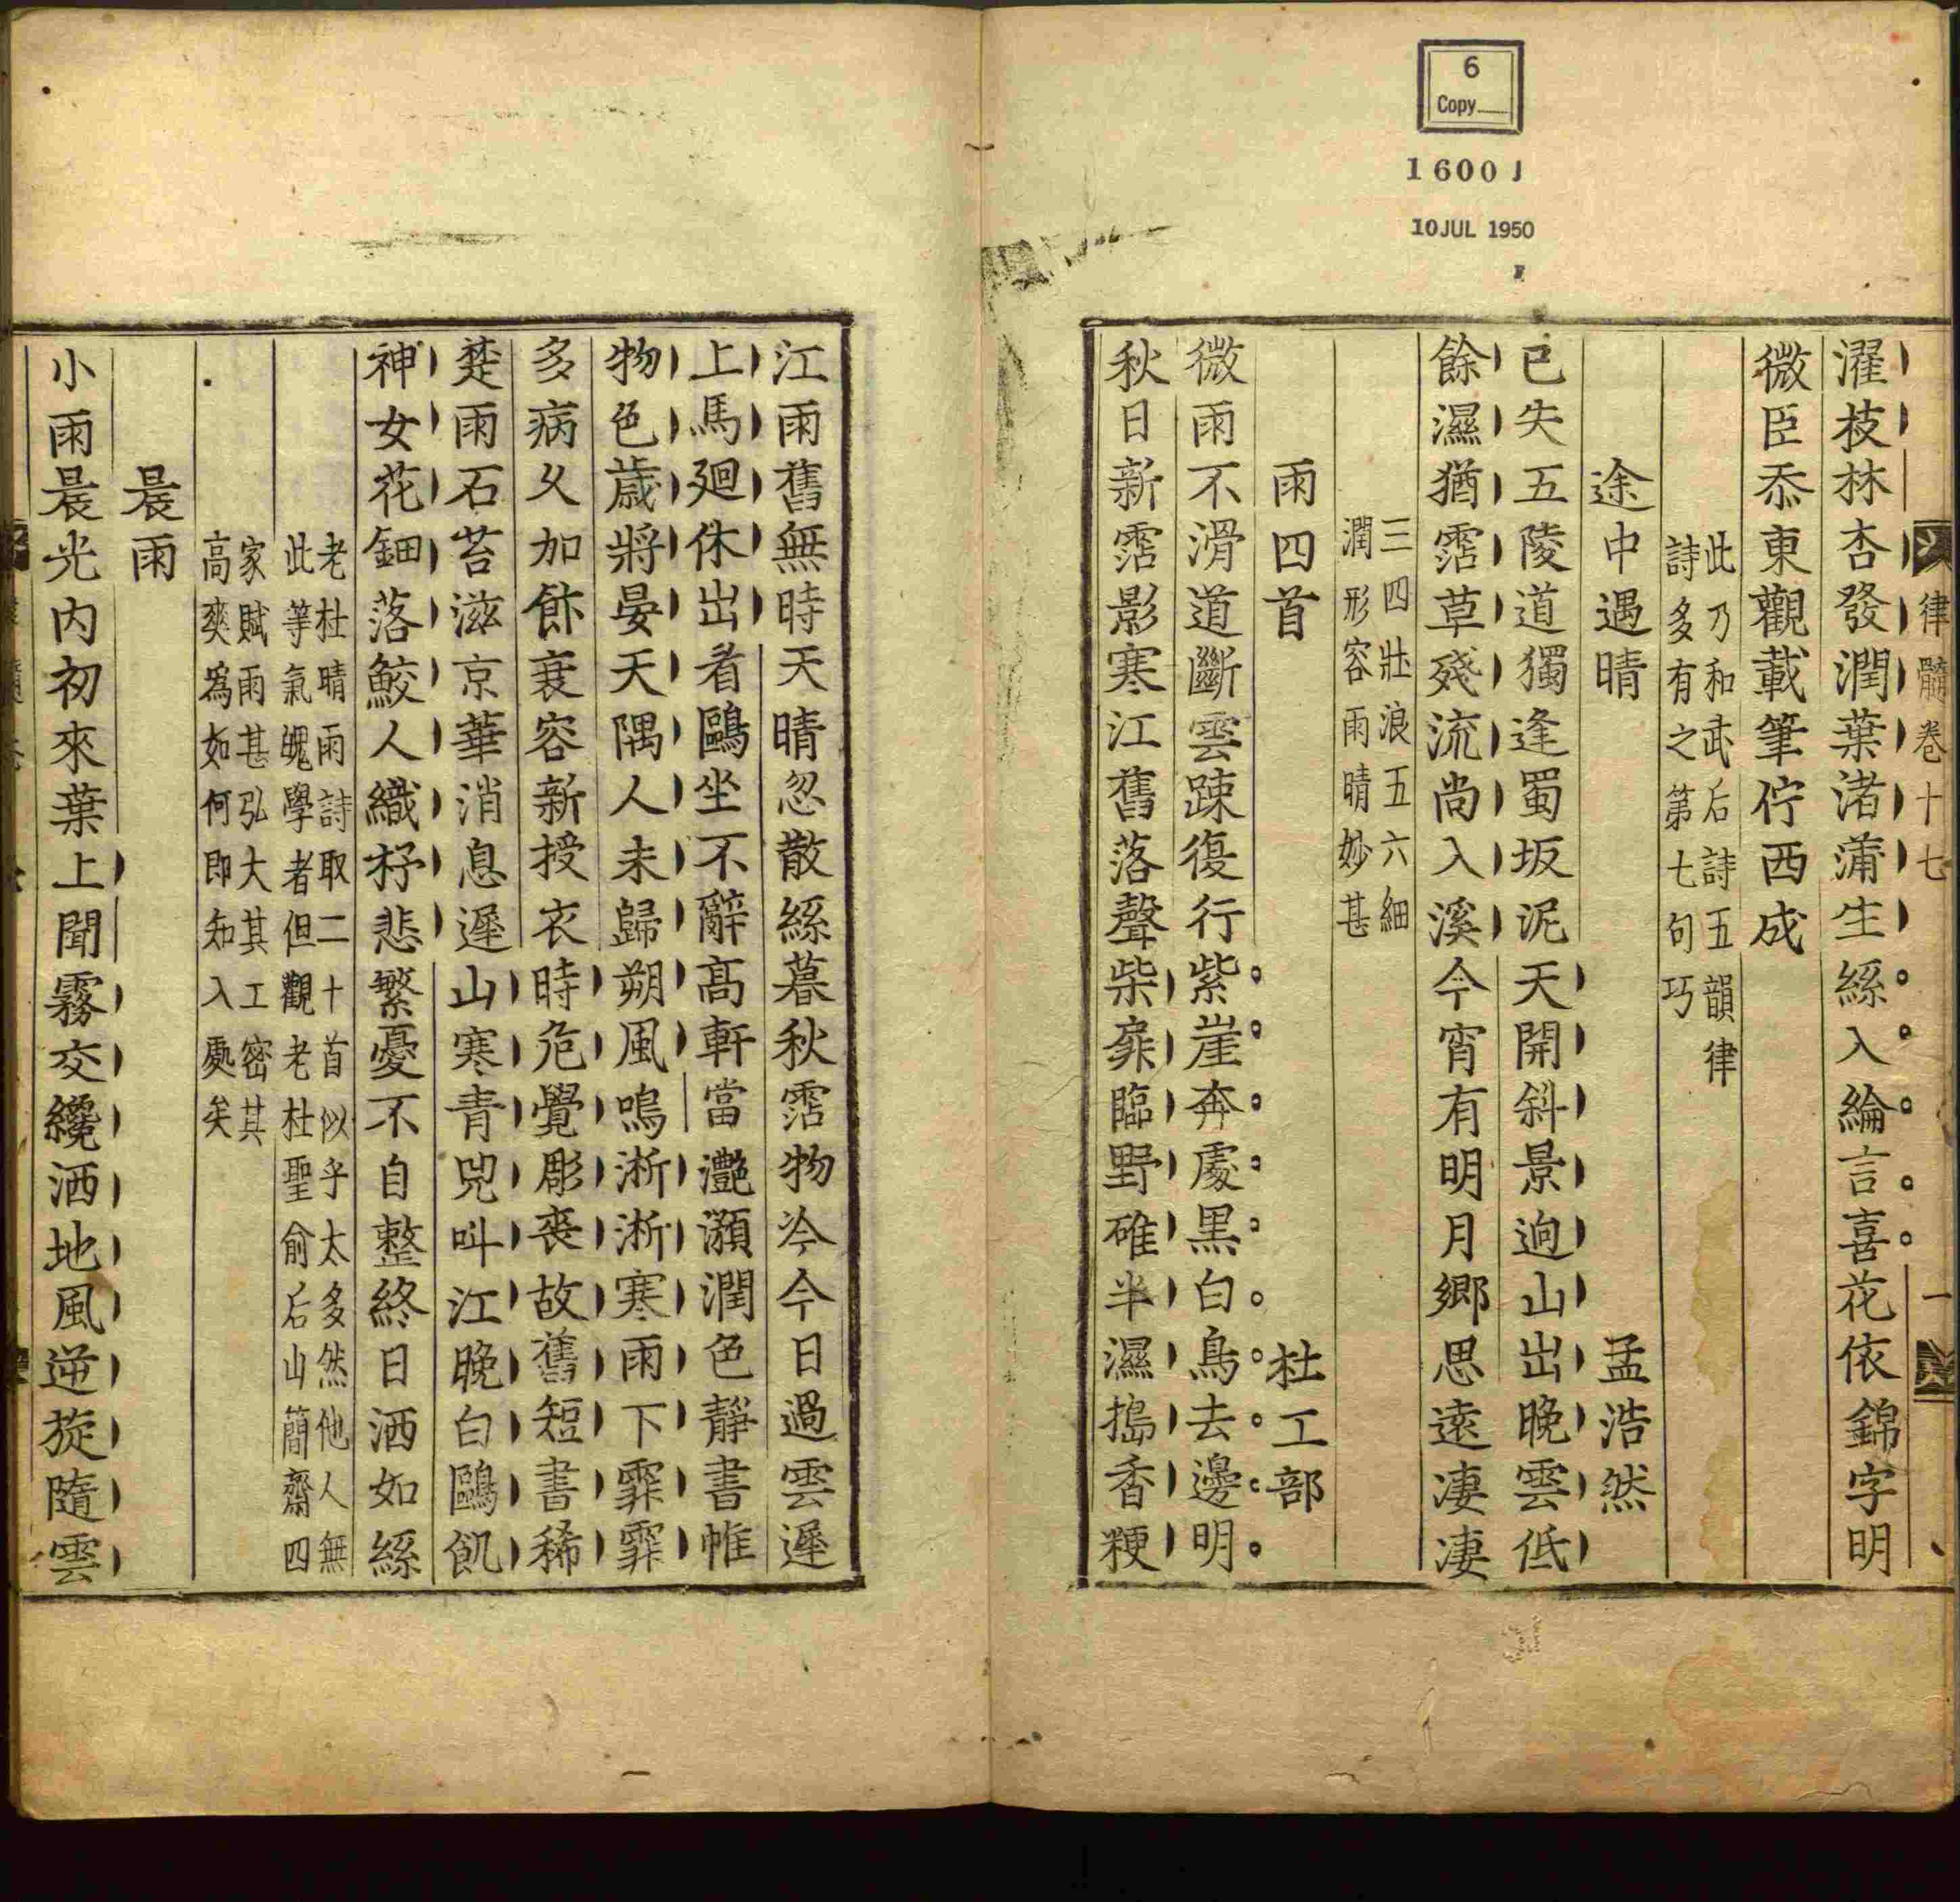 6
Copy
1600J
10 JUL 1950
律髓卷十七 一
濯枝林杏發潤葉渚蒲生絲入綸言喜花依錦字明
微臣忝東觀載筆佇西成
此乃和武后詩五韻律
詩多有之第七句巧
途中遇晴 孟浩然
已失五陵道獨逢蜀坂泥天開斜景逈山出晚雲低
餘濕猶霑草殘流尚入溪今宵有明月鄉思遠凄凄
三四壯浪五六細
潤形容雨晴妙甚
雨四首 杜工部
微雨不滑道斷雲踈復行紫崖奔處黒白鳥去邊明
秋日新霑影寒江舊落聲柴扉臨野碓半濕搗香粳
江雨舊無時天晴忽散絲暮秋霑物冷今日過雲遲
上馬廻休出看鷗坐不辭髙軒當灔澦潤色靜書帷
物色歲將晏天隅人未歸朔風鳴淅淅寒雨下霏霏
多病久加飰衰容新授衣時危覺彫喪故舊短書稀
楚雨石苔滋京華消息遲山寒青兕叫江晚白鷗飢
神女花鈿落鮫人織杼悲繁憂不自整終日洒如絲
老杜晴雨詩取二十首似乎太多然他人無
此等氣魄學者但觀老杜聖俞后山簡齋四
家賦雨甚弘大其工密其
高爽爲如何即知入處矣
晨雨
小雨晨光内初來葉上聞霧交纔洒地風逆旋隨雲